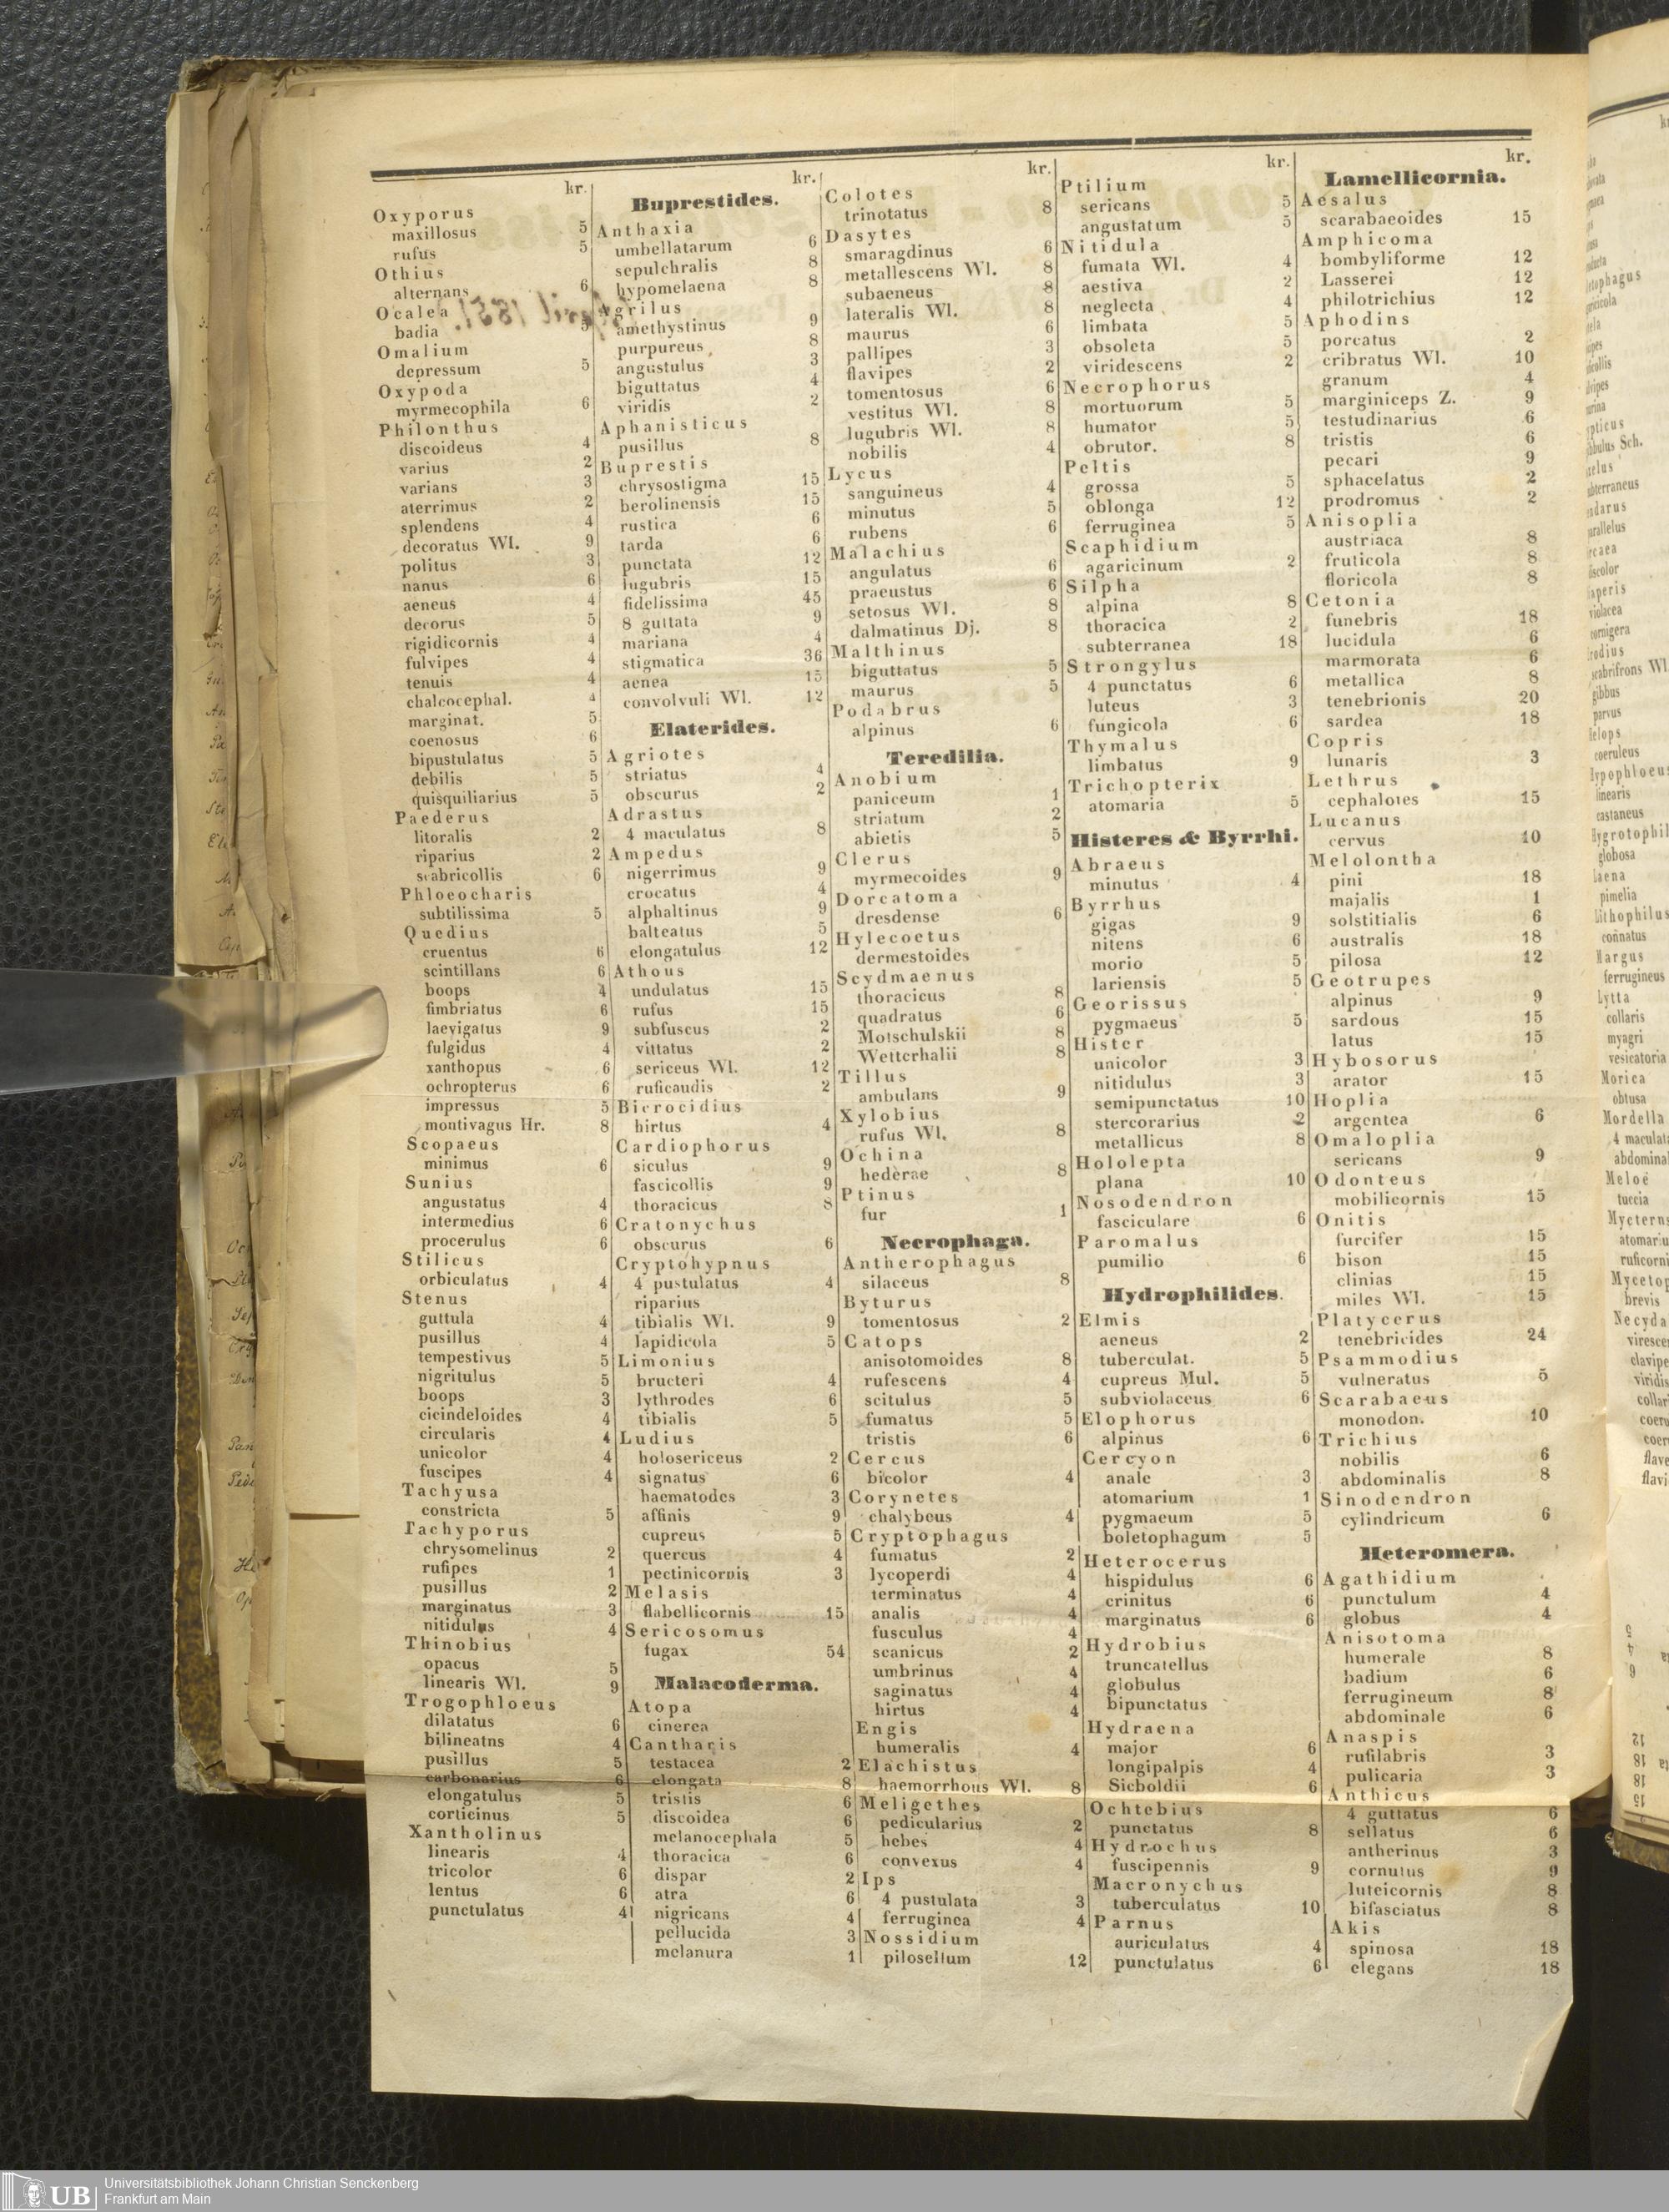 kr.
Oxyporus
maxillosus 5
rufus 5
Othius
alternans 6
Ocalea
badia 5
Omalium
depressum 5
Oxypoda
myrmecophila 6
Philonthus
discoideus 4
varius 2
varians 3
aterrimus 2
splendens 4
decoratus Wl. 9
politus 3
nanus 6
aeneus 4
decorus 5
rigidicornis 4
fulvipes 4
tenuis 4
chalcocephal. 4
marginat. 5
coenosus 6
bipustulatus 5
debilis 5
quisquiliarius 5
Paederus
litoralis 2
riparius 2
scabricollis 6
Phloeocharis
subtilissima 5
Quedius
cruentus 6
scintillans 6
boops 4
fimbriatus 6
laevigatus 9
fulgidus 4
xanthopus 6
ochropterus 6
impressus 5
montivagus Hr. 8
Scopaeus
minimus 6
Sunius
angustatus 4
intermedius 6
procerulus 6
Stilicus
orbiculatus 4
Stenus
guttula 4
pusillus 4
tempestivus 5
nigritulus 5
boops 3
cicindeloides 4
circularis 4
unicolor 4
fuscipes 4
Tachyusa
constricta 5
Tachyporus
chrysomelinus 2
rufipes 1
pusillus 2
marginatus 3
nitidulus 4
Thinobius
opacus 5
linearis Wl. 9
Trogophloeus
dilatatus 6
bilineatns 4
pusillus 5
carbonarius 6
elongatulus 5
corticinus 5
Xantholinus
linearis 4
tricolor 6
lentus 6
punctulatus 4
kr.
Buprestides.
Anthaxia
umbellatarum 6
sepulchralis 8
hypomelaena 8
Agrilus
amethystinus 9
purpureus 8
angustulus 3
biguttatus 4
viridis 2
Aphanisticus
pusillus 8
Buprestis
chrysostigma 15
berolinensis 15
rustica 6
tarda 6
punctata 12
lugubris 15
fidelissima 45
8 guttata 9
mariana 4
stigmatica 36
aenea 15
convolvuli Wl. 12
Elaterides.
Agriotes
striatus 4
obscurus 2
Adrastus
4 maculatus 8
Ampedus
nigerrimus 9
crocatus 4
alphaltinus 9
balteatus 5
elongatulus 12
Athous
undulatus 15
rufus 15
subfuscus 2
vittatus 2
sericeus Wl. 12
ruficaudis 2
Bicrocidius
hirtus 4
Cardiophorus
siculus 9
fascicollis 9
thoracicus 8
Cratonychus
obscurus 6
Cryptohypnus
4 pustulatus 4
riparius
tibialis Wl. 9
lapidicola 5
Limonius
bructeri 4
lythrodes 6
tibialis 5
Ludius
holosericeus 2
signatus 6
haematodes 3
affinis 9
cupreus 5
quercus 4
pectinicornis 3
Melasis
flabellicornis 15
Sericosomus
fugax 54
Malacoderma.
Atopa
cinerea
Cantharis
testacea 2
elongata 8
tristis 6
discoidea 6
melanocephala 5
thoracica 6
dispar 2
atra 6
nigricans 4
pellucida 3
melanura 1
kr.
Colotes
trinotatus 8
Dasytes
smaragdinus 6
metallescens Wl. 8
subaeneus 8
lateralis Wl. 8
maurus 6
pallipes 3
flavipes 2
tomentosus 6
vestitus Wl. 8
lugubris Wl. 8
nobilis 4
Lycus
sanguineus 4
minutus 5
rubens 6
Malachius
angulatus 6
praeustus 6
setosus Wl. 8
dalmatinus Dj. 8
Malthinus
biguttatus 5
maurus 5
Podabrus
alpinus 6
Teredilia.
Anobium
paniceum 1
striatum 2
abietis 5
Clerus
myrmecoides 9
Dorcatoma
dresdense 6
Hylecoetus
dermestoides
Scydmaenus
thoracicus 8
quadratus 6
Motschulskii 8
Wetterhalii 8
Tillus
ambulans 9
Xylobius
rufus Wl. 8
Ochina
hederae 8
Ptinus
fur 1
Necrophaga.
Antherophagus
silaceus 8
Byturus
tomentosus 2
Catops
anisotomoides 8
rufescens 4
scitulus 5
fumatus 5
tristis 6
Cercus
bicolor 4
Corynetes
chalybeus 4
Cryptophagus
fumatus 2
lycoperdi 4
terminatus 4
analis 4
fusculus 4
scanicus 2
umbrinus 4
saginatus 4
hirtus 4
Engis
humeralis 4
Elachistus
haemorrhous Wl. 8
Meligethes
pedicularius 2
hebes 4
convexus 4
Ips
4 pustulata 3
ferruginea 4
Nossidium
pilosellum 12
kr.
Ptilium
sericans 5
angustatum 5
Nitidula
fumata Wl. 4
aestiva 2
neglecta 4
limbata 5
obsoleta 5
viridescens 2
Necrophorus
mortuorum 5
humator 5
obrutor. 8
Peltis
grossa 5
oblonga 12
ferruginea 5
Scaphidium
agaricinum 2
Silpha
alpina 8
thoracica 2
subterranea 18
Strongylus
4 punctatus 6
luteus 3
fungicola 6
Thymalus
limbatus 9
Trichopterix
atomaria 5
Histeres & Byrrhi.
Abraeus
minutus 4
Byrrhus
gigas 9
nitens 6
morio 5
lariensis 5
Georissus
pygmaeus 5
Hister
unicolor 3
nitidulus 3
semipunctatus 10
stercorarius 2
metallicus 8
Hololepta
plana 10
Nosodendron
fasciculare 6
Paromalus
pumilio 6
Hydrophilides.
Elmis
aeneus 2
tuberculat. 5
cupreus Mul. 5
subviolaceus 6
Elophorus
alpinus 6
Cercyon
anale 3
atomarium 1
pygmaeum 5
boletophagum 5
Heterocerus
hispidulus 6
crinitus 6
marginatus 6
Hydrobius
truncatellus
globulus
bipunctatus
Hydraena
major 6
longipalpis 4
Sieboldii 6
Ochtebius
punctatus 8
Hydrochus
fuscipennis 9
Macronychus
tuberculatus 10
Parnus
auriculatus 4
punctulatus 6
kr.
Lamellicornia.
Aesalus
scarabaeoides 15
Amphicoma
bombyliforme 12
Lasserei 12
philotrichius 12
Aphodins
porcatus 2
cribratus Wl. 10
granum 4
marginiceps Z. 9
testudinarius 6
tristis 6
pecari 9
sphacelatus 2
prodromus 2
Anisoplia
austriaca 8
fruticola 8
floricola 8
Cetonia
funebris 18
lucidula 6
marmorata 6
metallica 8
tenebrionis 20
sardea 18
Copris
lunaris 3
Lethrus
cephalotes 15
Lucanus
cervus 10
Melolontha
pini 18
majalis 1
solstitialis 6
australis 18
pilosa 12
Geotrupes
alpinus 9
sardous 15
latus 15
Hybosorus
arator 15
Hoplia
argentea 6
Omaloplia
sericans 9
Odonteus
mobilicornis 15
Onitis
furcifer 15
bison 15
clinias 15
miles Wl. 15
Platycerus
tenebricides 24
Psammodius
vulneratus 5
Scarabaeus
monodon. 10
Trichius
nobilis 6
abdominalis 8
Sinodendron
cylindricum 6
Heteromera.
Agathidium
punctulum 4
globus 4
Anisotoma
humerale 8
badium 6
ferrugineum 8
abdominale 6
Anaspis
rufilabris 3
pulicaria 3
Anthicus
4 guttatus 6
sellatus 6
antherinus 3
cornutus 9
luteicornis 8
bifasciatus 8
Akis
spinosa 18
elegans 18
UB Universitätsbibliothek Johann Christian Senckenberg
Frankfurt am Main